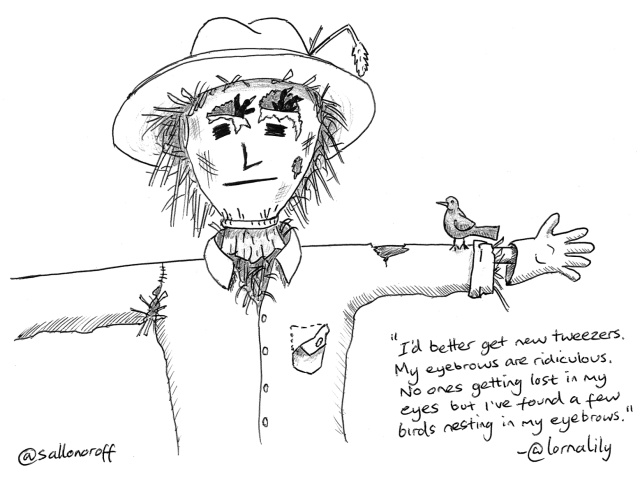 "I'd better get new tweezers.
My eyebrows are ridiculous.
No ones getting lost in my
eyes but I've found a few
birds nesting in my eyebrows."
-@lornalily
@sallonoroff